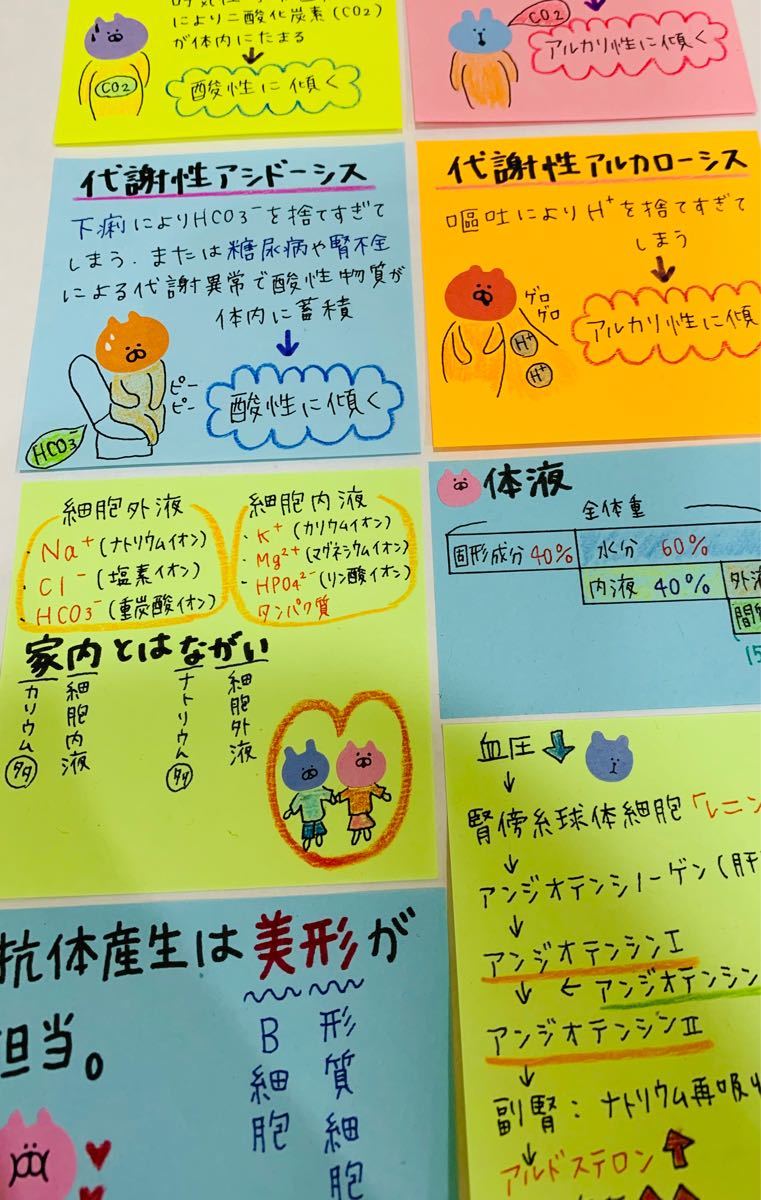 により二酸化炭素(CO2)
が体内にたまる
CO2
酸性に傾く
CO2
アルカリ性に傾く
代謝性アシドーシス
下痢によりHCO3⁻を捨てすぎて
しまう.または糖尿病や腎不全
による代謝異常で酸性物質が
体内に蓄積
ピー
ピー
HCO3⁻
酸性に傾く
代謝性アルカローシス
嘔吐によりH⁺を捨てすぎて
しまう
ゲロ
ゲロ
H⁺
H⁺
アルカリ性に傾
細胞外液
・Na⁺(ナトリウムイオン)
・Cl⁻(塩素イオン)
・HCO3⁻(重炭酸イオン)
細胞内液
・K⁺(カリウムイオン)
・Mg²⁺(マグネシウムイオン)
・HPO4²⁻(リン酸イオン)
タンパク質
家内とはながい
カリウム多
細胞内液
ナトリウム多
細胞外液
体液
全体重
固形成分 40% 水分 60%
内液 40% 外液
間質
15
血圧↓
↓
腎傍糸球体細胞「レニン
↓
アンジオテンシノーゲン(肝
↓
アンジオテンシンⅠ
↓ ← アンジオテンシン
アンジオテンシンⅡ
↓
副腎:ナトリウム再吸収
↓
アルドステロン↑
抗体産生は美形が
担当。
B細胞
形質細胞